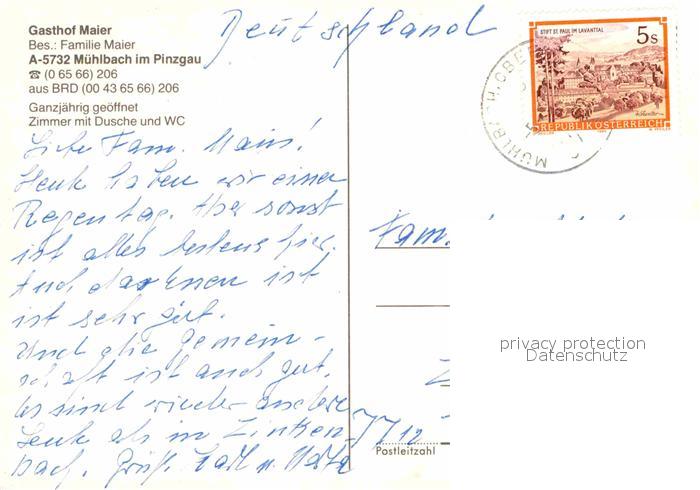 Deutschland
Gasthof Maier
Bes.: Familie Maier
A-5732 Mühlbach im Pinzgau
☎ (0 65 66) 206
aus BRD (00 43 65 66) 206
Ganzjährig geöffnet
Zimmer mit Dusche und WC
STIFT ST. PAUL IM LAVANTTAL
5s
REPUBLIK ÖSTERREICH
MÜHLBACH, OBE
Liebe Fam.
Heute haben wir einen
Regentag. Aber sonst
ist alles bestens hier.
Auch das Essen ist
ist sehr gut.
Und die Gemein-
schaft ist auch gut.
Es sind wieder andere
Leute als in Zinken-
bach. Grüße Karl u.
Fam.
7712
Postleitzahl
privacy protection
Datenschutz